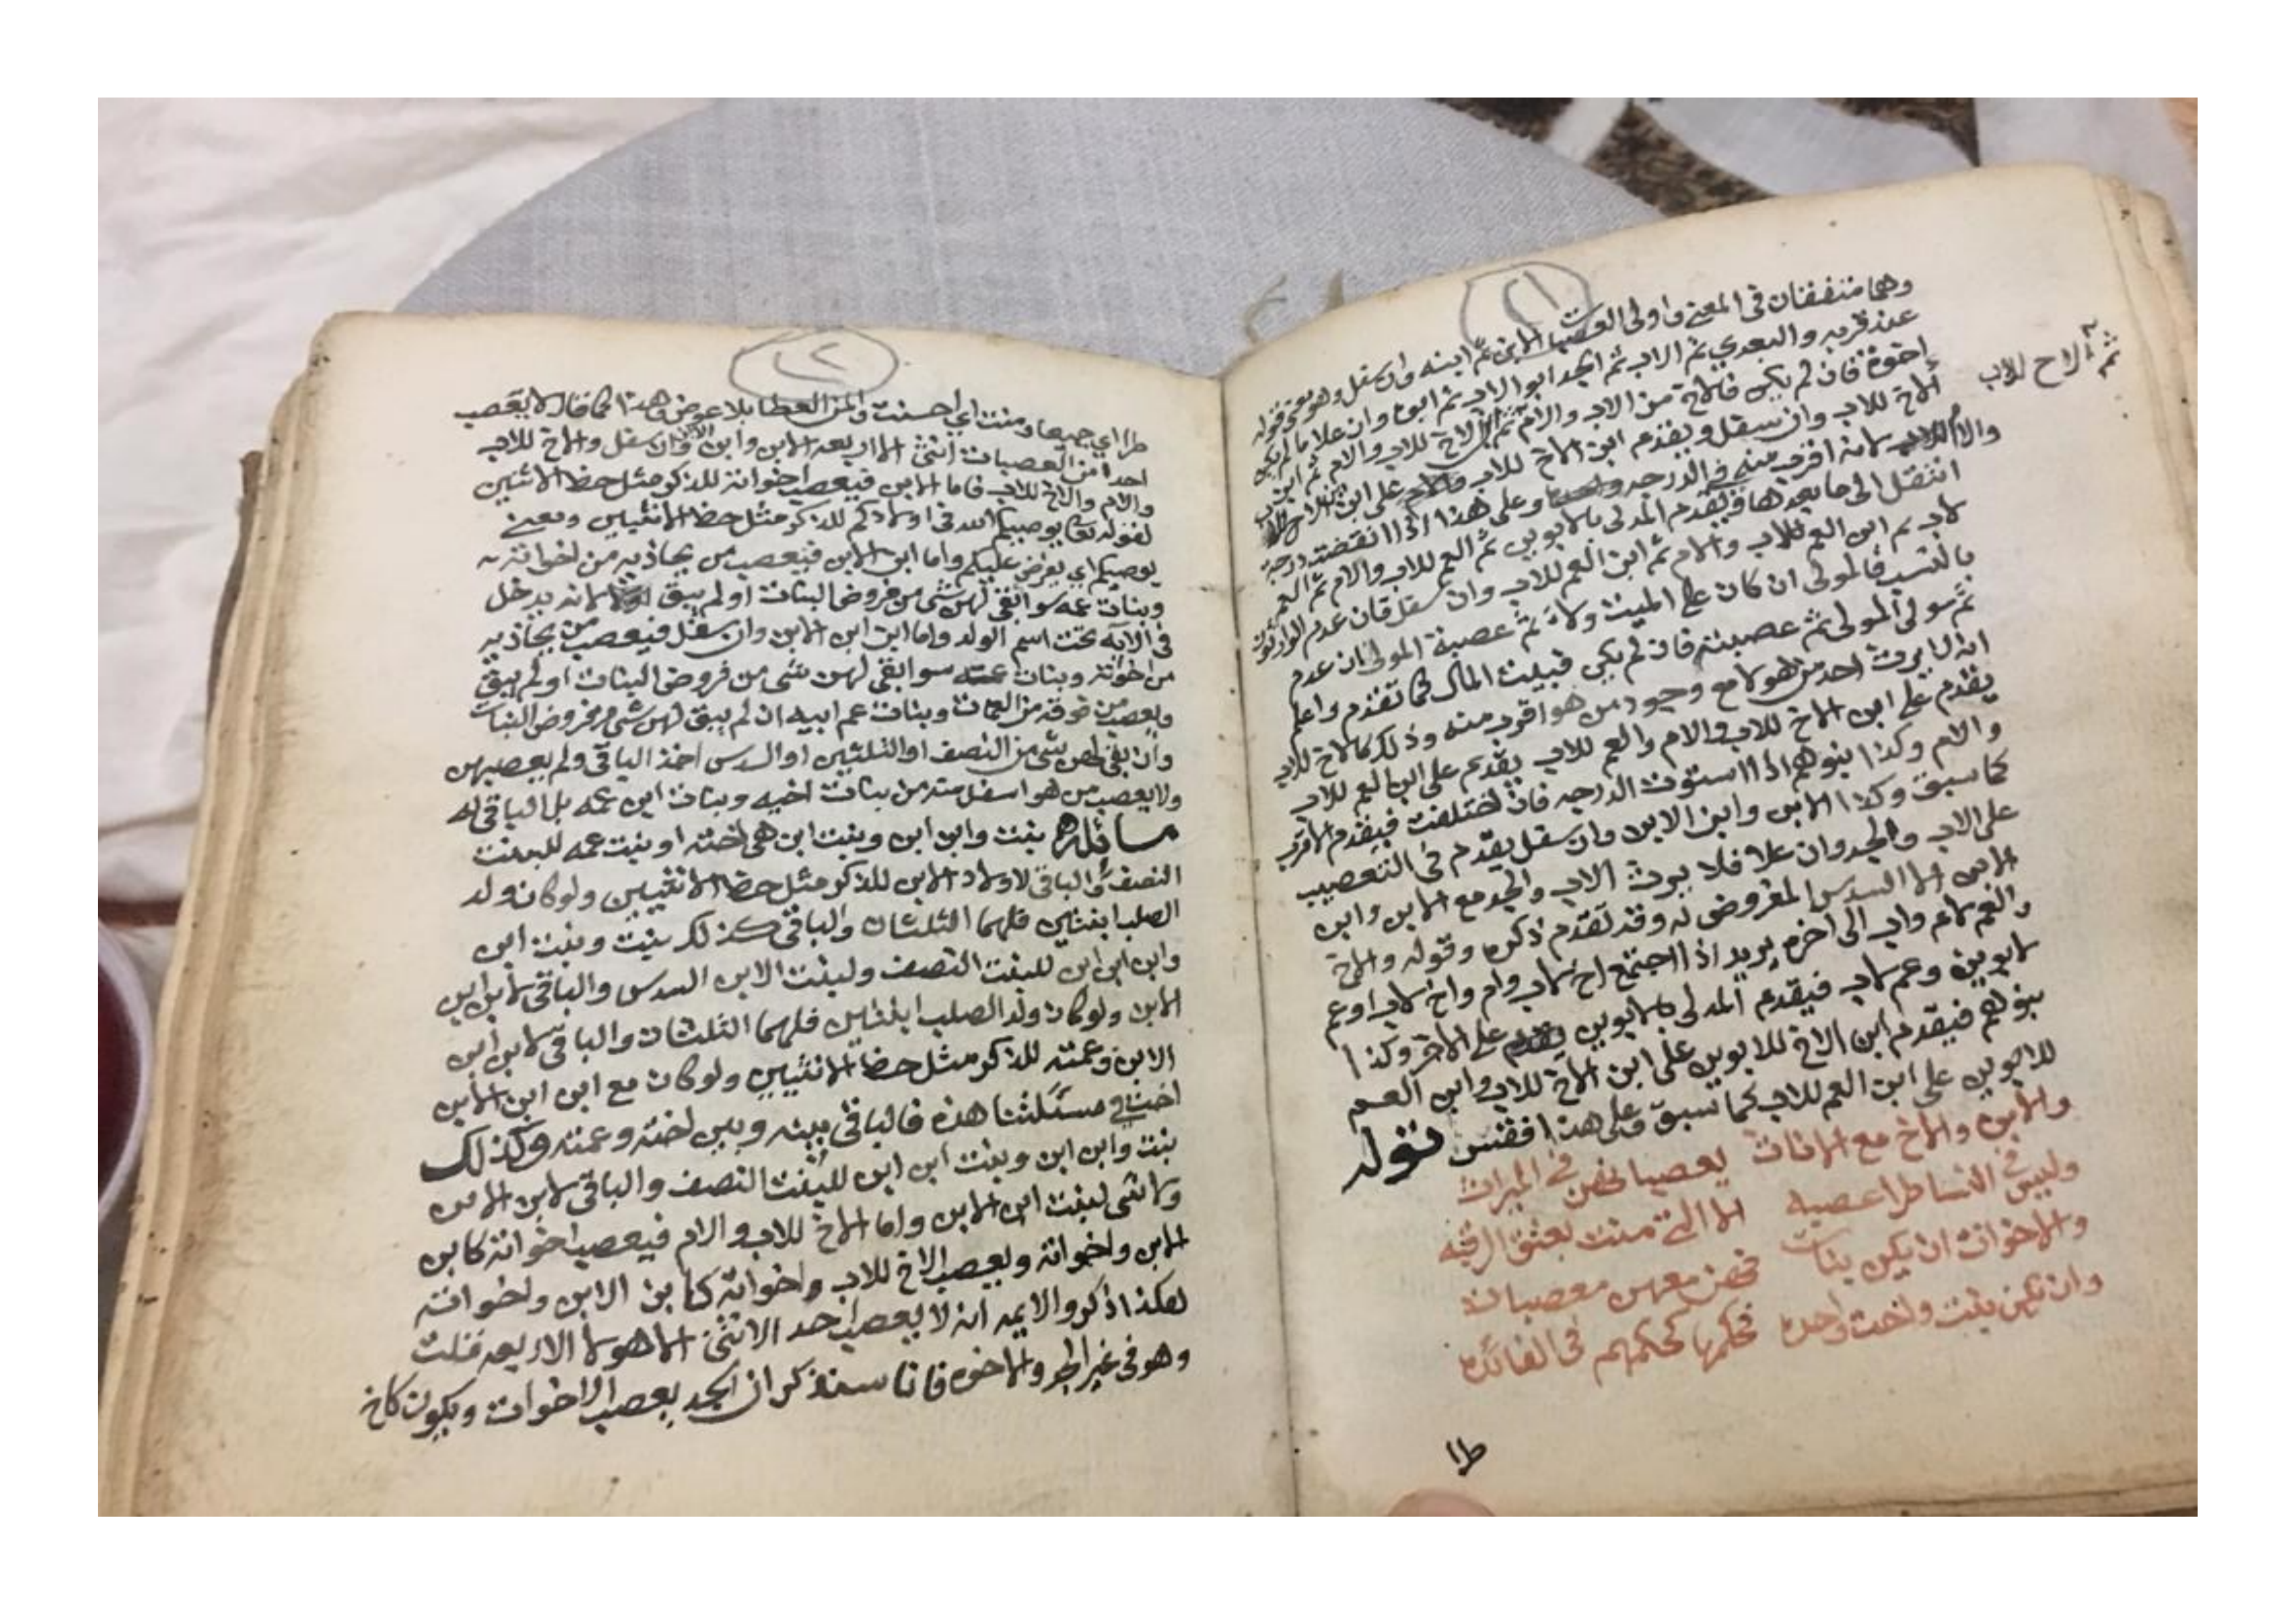 ٢١
وهما متفقتان في المعنى واولى العصبات الابن ثم ابنه وان سفل وهو معنى قوله
عند قربه والبعدي ثم الاب ثم الجد ابو الاب ثم ابوه وان علا ما لم يكن
اخوة فان لم يكن فالاخ من الاب والام ثم الاخ للاب والام ثم ابن
ثم الاخ للاب
الاخ للاب وان سفل ويقدم ابن الاخ للاب على ابن ابن الاخ للاب
والام لانه اقرب منه في الدرجه وعلى هذا اذا انقضت درجة
انتقل الى ما بعدها فيقدم المدلى بالابوين ثم العم للاب والام ثم العم
لاب ثم ابن العم للاب والام ثم ابن العم للاب وان سفل فان عدم الوارثون
بالنسب فالمولى ان كان على الميت ولاء ثم عصبة المولى ان عدم
ثم مولى المولى ثم عصبته فان لم يكن فبيت المال كما تقدم واعلم
انه لا يرث احد من هولا مع وجود من هو اقرب منه وذلك كالاخ للاب
يقدم على ابن الاخ للاب والام والعم للاب يقدم على ابن العم للاب
والام وكذا بنوهم اذا استوت الدرجه فان اختلفت فيقدم الاقرب
كما سبق وكذا الابن وابن الابن وان سفل يقدم في التعصيب
على الاب والجد وان علا فلا يرث الاب والجد مع الابن وابن
الابن الا السدس المفروض له وقد تقدم ذكره وقوله والاخ
والعم لام واب الى اخره يريد اذا اجتمع اخ لاب وام واخ لاب او عم
لابوين وعم لاب فيقدم المدلى بالابوين على الاخر وكذا
بنوهم فيقدم ابن الاخ للابوين على ابن الاخ للاب وابن العم
للابوين على ابن العم للاب كما سبق وعلى هذا فقس قوله
والابن والاخ مع الاناث يعصبانهن في الميراث
وليس في النسا طرا عصبه الا التي منت بعتق الرقبه
والاخوات ان يكن بنات فهن معهن معصبات
وان تكن بنت واخت واحده فحكمها كحكمهم في الفائده
طرا
٢٢
طرا اي جميعا ومنت اي احسنت والمن العطا بلا عوض وهذا كما قال لا يعصب
احدا من العصبات انثى الا اربعه الابن وابن الابن وان سفل والاخ للاب
والام والاخ للاب فاما الابن فيعصب اخواته للذكر مثل حظ الانثيين
لقوله تعا يوصيكم الله في اولادكم للذكر مثل حظ الانثيين ومعنى
يوصيكم اي يفرض عليكم واما ابن الابن فيعصب من يحاذيه من اخواته
وبنات عمه سوا بقي لهن شي من فروض البنات او لم يبق لانه يدخل
في الآيه تحت اسم الولد واما ابن ابن الابن وان سفل فيعصب من يحاذيه
من اخواته وبنات عمه سوا بقي لهن شي من فروض البنات او لم يبق
ويعصب من فوقه من العمات وبنات عم ابيه ان لم يبق لهن شي من فروض البنات
وان بقي لهن شي من النصف او الثلثين او السدس اخذ الباقي ولم يعصبهن
ولا يعصب من هو اسفل منه من بنات اخيه وبنات ابن عمه بل الباقي له
مسائله بنت وابن ابن وبنت ابن هي اخته او بنت عمه للبنت
النصف والباقي لاولاد الابن للذكر مثل حظ الانثيين ولو كان ولد
الصلب ابنتين فلهما الثلثان والباقي كذلك بنت وبنت ابن
وابن ابن ابن للبنت النصف ولبنت الابن السدس والباقي لابن ابن
الابن ولو كان ولد الصلب ابنتين فلهما الثلثان والباقي لابن ابن
الابن وعمته للذكر مثل حظ الانثيين ولو كان مع ابن ابن الابن
اخت في مسئلتنا هذه فالباقي بينه وبين اخته وعمته وكذلك
بنت وابن ابن وبنت ابن ابن للبنت النصف والباقي لابن الابن
ولا شي لبنت ابن الابن واما الاخ للاب والام فيعصب اخواته كابن
الابن واخواته ويعصب الاخ للاب واخواته كابن الابن واخواته
هكذا ذكروا الايمه انه لا يعصب احد الانثى الا هولا الاربعه قلت
وهو في غير الجد والاخوه فانا سنذكر ان الجد يعصب الاخوات ويكون كاخ